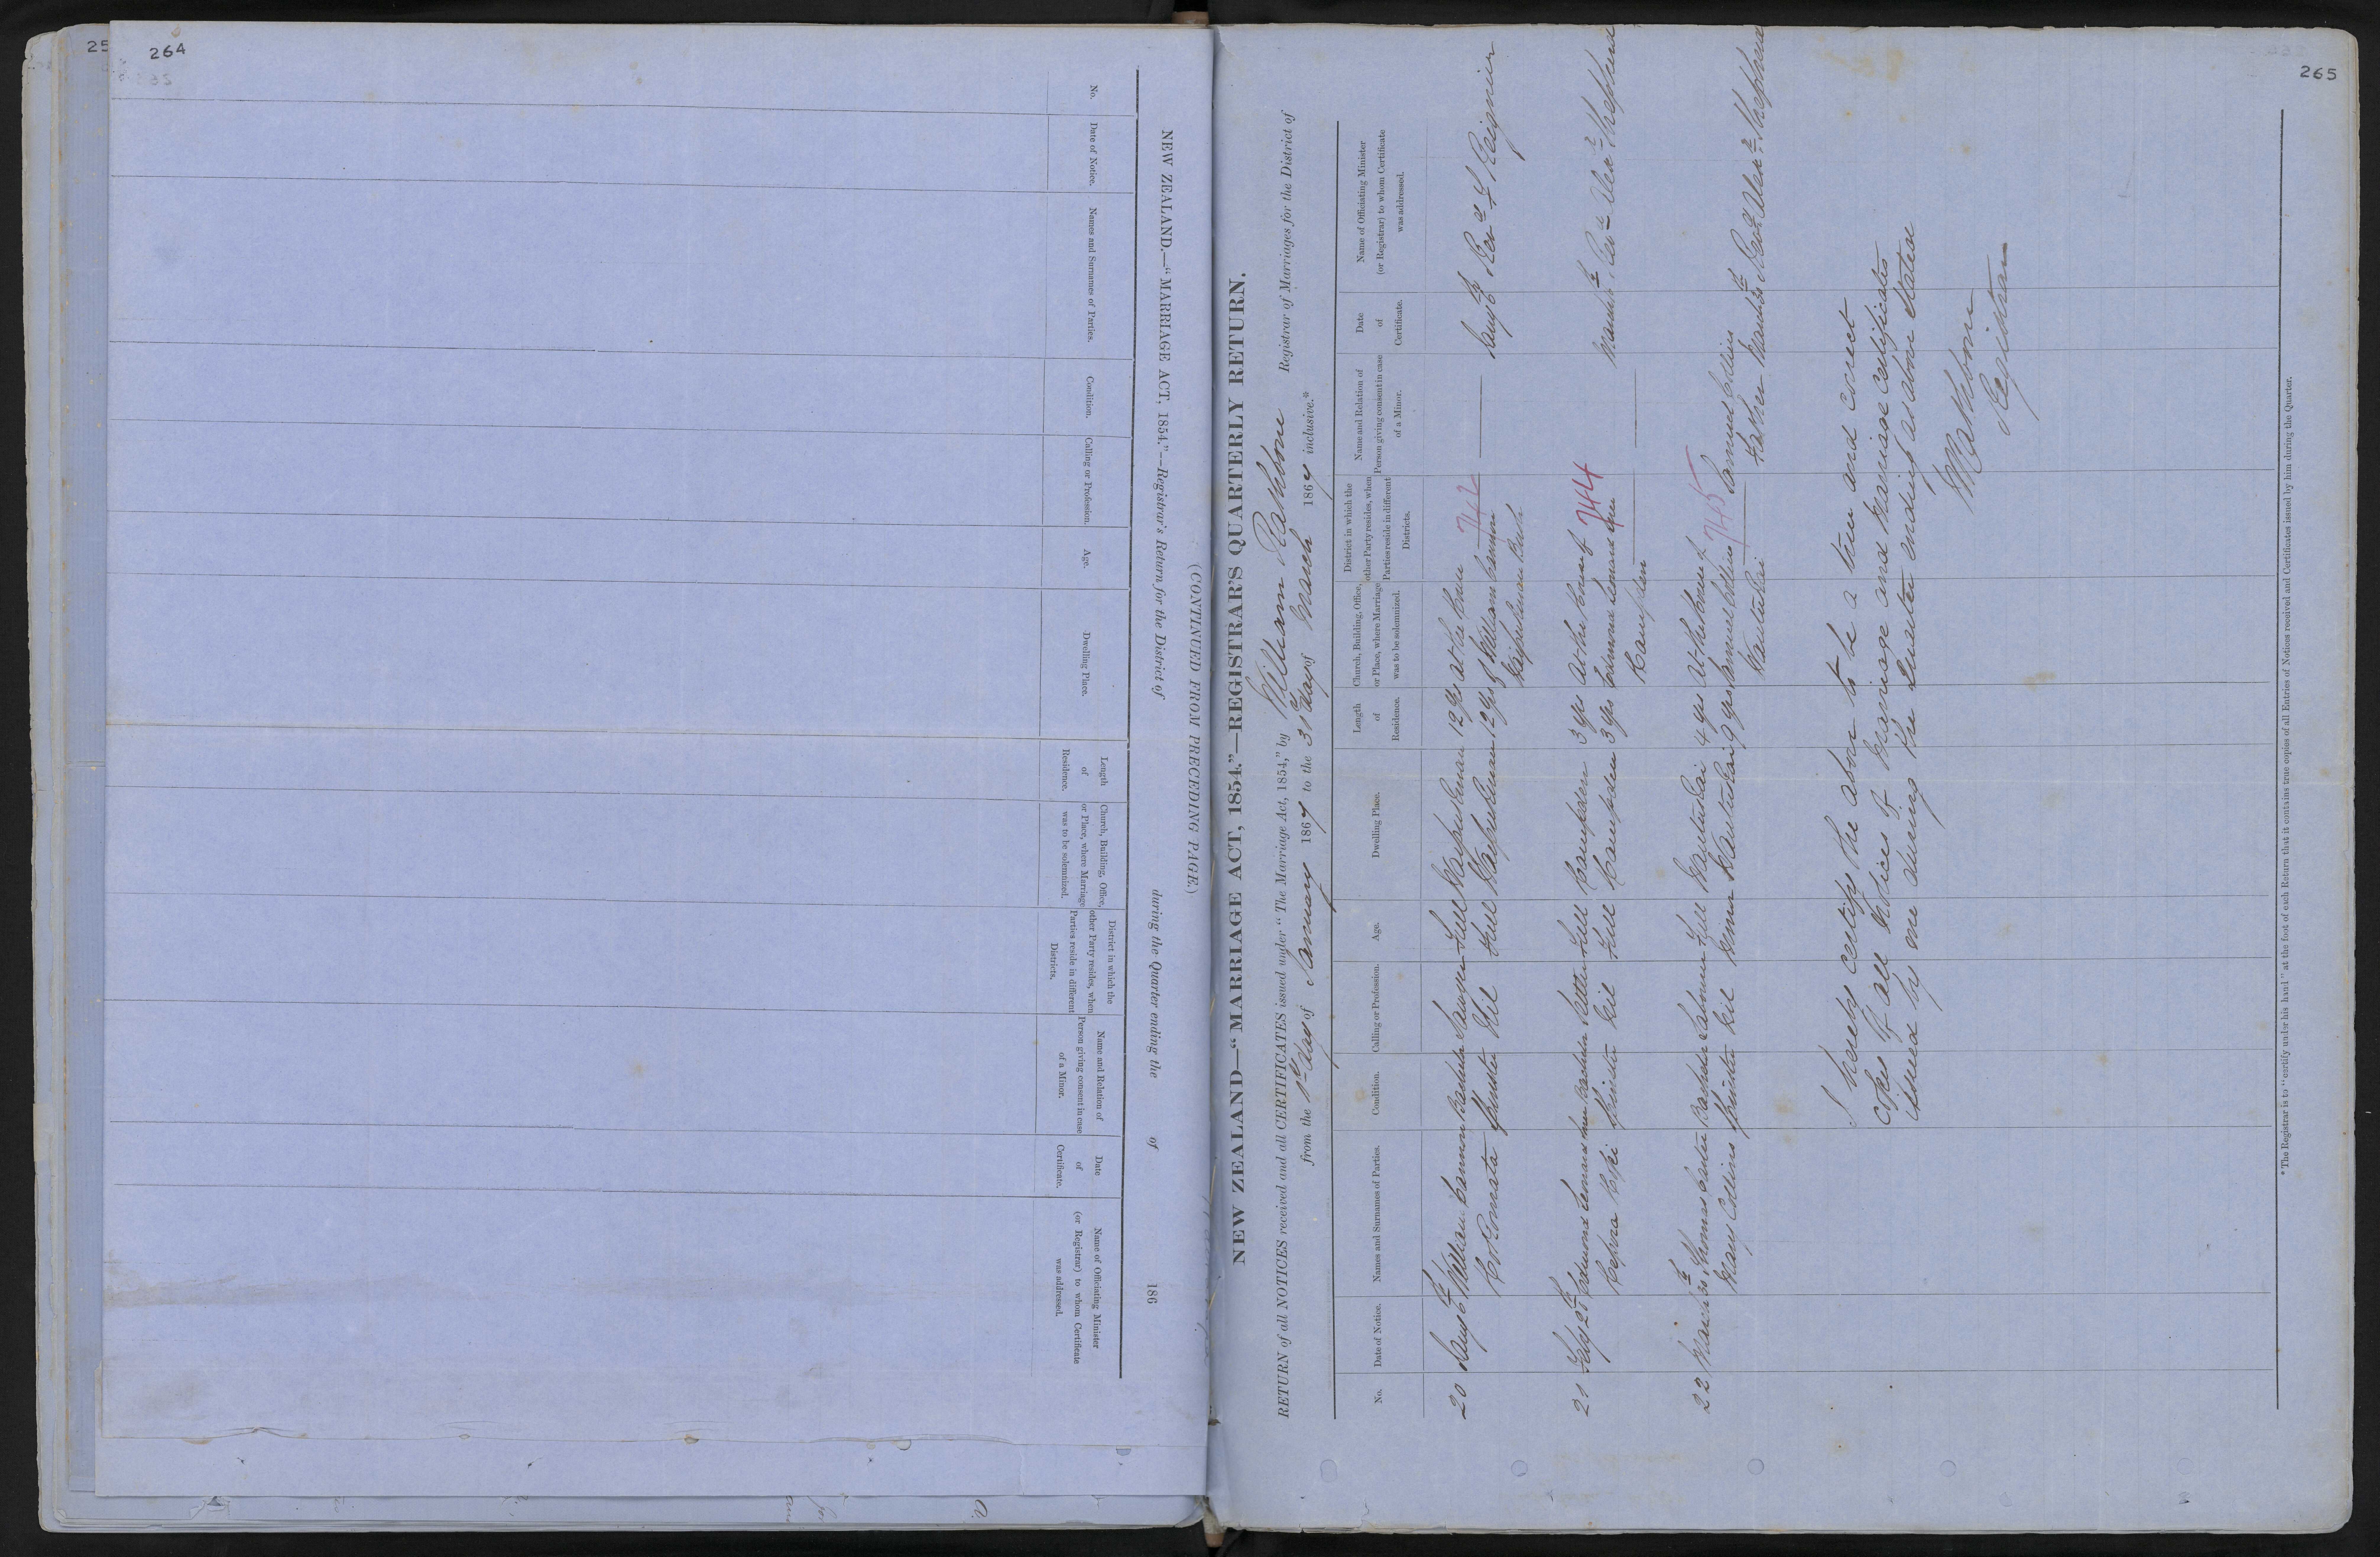 25
264
NEW ZEALAND.—"MARRIAGE ACT, 1854."—Registrar's Return for the District of during the Quarter ending the of 186
(CONTINUED FROM PRECEDING PAGE.)
No.
Date of Notice.
Names and Surnames of Parties.
Condition.
Calling or Profession.
Age.
Dwelling Place.
Length
of
Residence.
Church, Building, Office,
or Place, where Marriage
was to be solemnized.
District in which the
other Party resides, when
Parties reside in different
Districts.
Name and Relation of
Person giving consent in case
of a Minor.
Date
of
Certificate.
Name of Officiating Minister
(or Registrar) to whom Certificate
was addressed.
265
NEW ZEALAND—"MARRIAGE ACT, 1854."—REGISTRAR'S QUARTERLY RETURN.
RETURN of all NOTICES received and all CERTIFICATES issued under "The Marriage Act, 1854," by William Rathbone Registrar of Marriages for the District of
from the 1st day of January 1867 to the 31st day of March 1867 inclusive.*
No.
Date of Notice.
Names and Surnames of Parties.
Condition.
Calling or Profession.
Age.
Dwelling Place.
Length
of
Residence.
Church, Building, Office,
or Place, where Marriage
was to be solemnized.
District in which the
other Party resides, when
Parties reside in different
Districts.
Name and Relation of
Person giving consent in case
of a Minor.
Date
of
Certificate.
Name of Officiating Minister
(or Registrar) to whom Certificate
was addressed.
20 Jany 6th William Cannon Bachelor Sawyer Full 12 yrs At the house Jany 6th Revd Reignier
Spinster Nil Full 12 yrs of William Cannon
Bush
742
21 Feby 28th Edmund Bachelor Settler Full Campden 3 yrs At the house of March Revd Alexr Shepherd
Spinster Nil Full Campden 3 yrs Edmund
Campden
744
22 March 30th Thomas Carter Bachelor Labourer Full 4 yrs At the house of Samuel Collins
Mary Collins Spinster Nil Minor 9 yrs Samuel Collins Father March 30th Revd Alexr Shepherd
745
I hereby certify the above to be a true and correct
copy of all Notices of Marriage and Marriage Certificates
issued by me during the Quarter ending as above stated
W Rathbone
Registrar
* The Registrar is to "certify under his hand" at the foot of each Return that it contains true copies of all Entries of Notices received and Certificates issued by him during the Quarter.